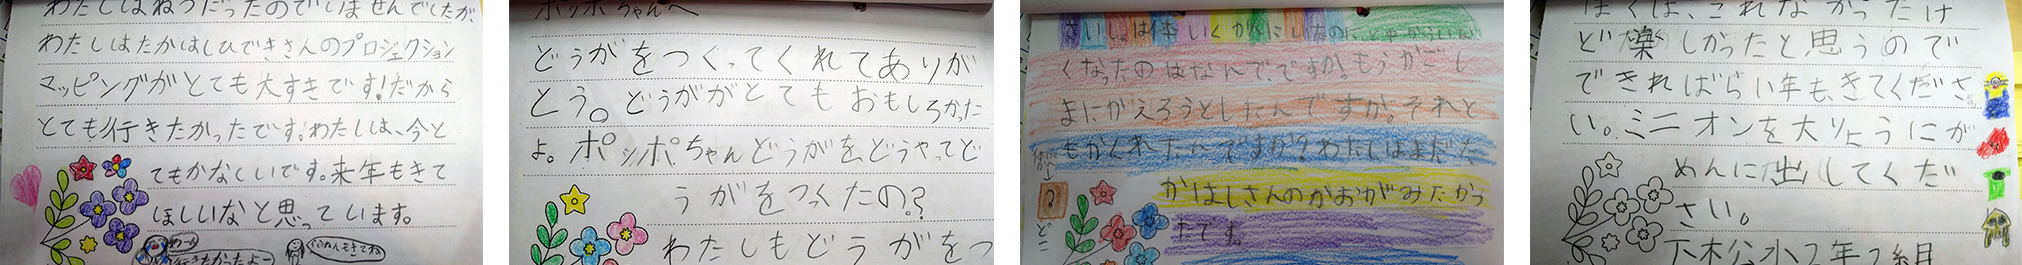 わたしはねつだったのでいませんでしたが、
わたしはたかはしひできさんのプロジェクション
マッピングがとても大すきです!だから
とても行きたかったです!わたしは、今と
てもかなしいです。来年もきて
ほしいなと思っています。
わーん
行きたかったよー
らいねんもきてね
ポッポちゃんへ
どうがをつくってくれてありが
とう。どうががとてもおもしろかった
よ。ポッポちゃんどうがをどうやってど
うがをつくたの??
わたしもどうがをつ
くなったのはなんで、ですか。もうかごし
まにかえろうとしたんですか。それと
もかくれたんですか?わたしはまだた
かはしさんのかおがみたかっ
たです。
どこ
ぼくは、これなかったけ
ど楽しかったと思うので
できればらい年も、きてくださ
い。ミニオンを大りょうにが
めんに出してくだ
さい。
下松小2年2組